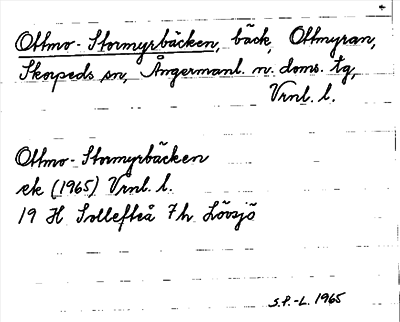 Ottmo-Stormyrbäcken, bäck, Ottmyran,
Skorpeds sn, Ångermanl. n. doms. tg,
Vrnl. l.
Ottmo-Stormyrbäcken
ek (1965) Vrnl. l.
19 H Sollefteå 7h Lövsjö
S.P.-L. 1965